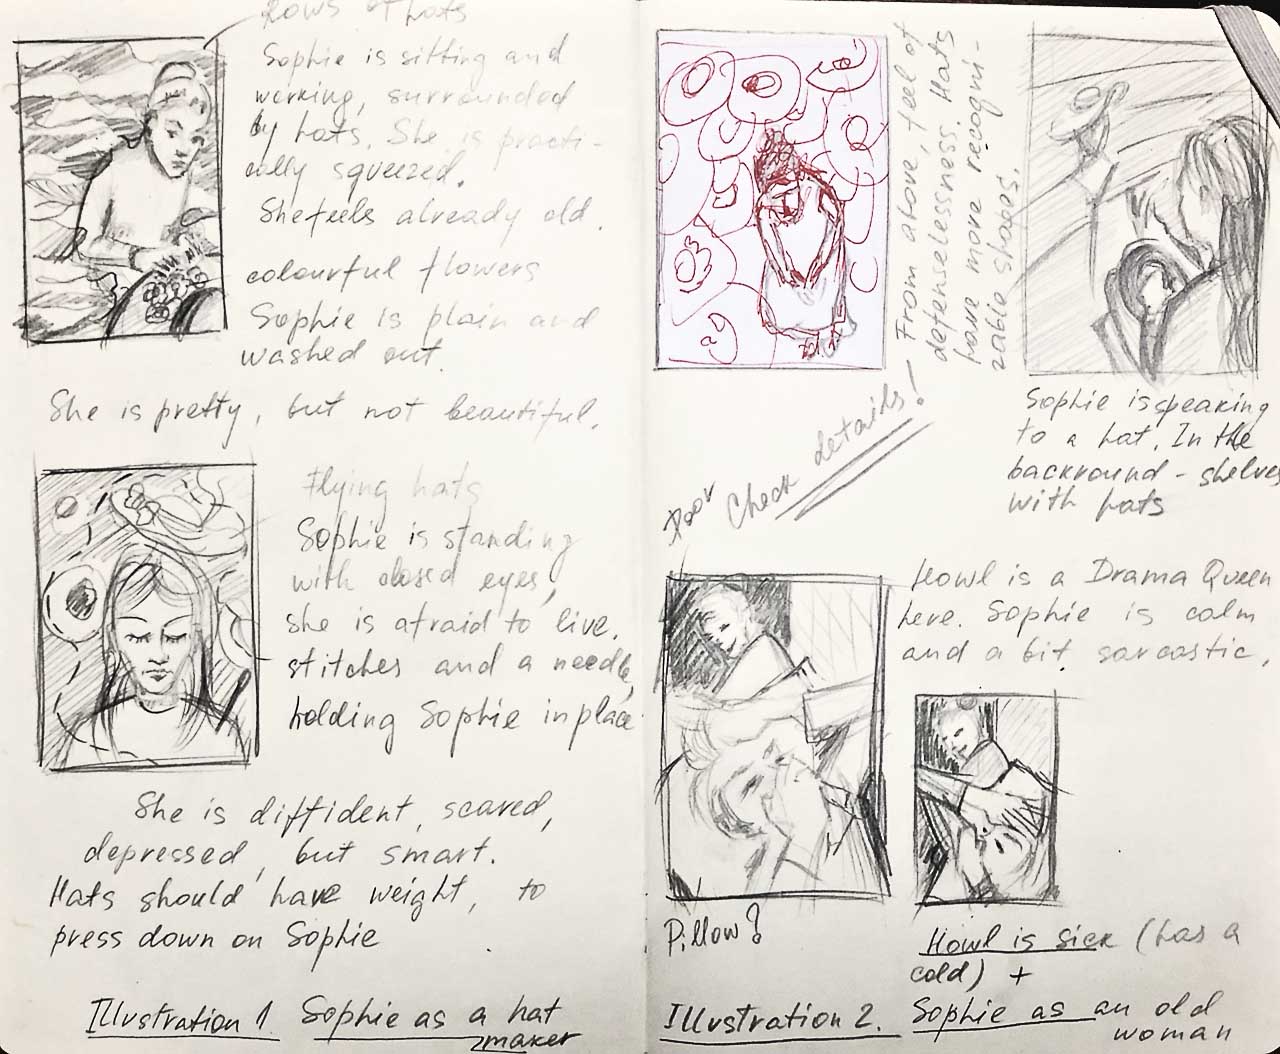 Rows of hats
Sophie is sitting and
working, surrounded
by hats. She is practi-
cally squeezed.
She feels already old.
colourful flowers
Sophie is plain and
washed out.
She is pretty, but not beautiful.
Flying hats
Sophie is standing
with closed eyes,
she is afraid to live.
stitches and a needle,
holding Sophie in place
She is diffident, scared,
depressed, but smart.
Hats should have weight, to
press down on Sophie
Illustration 1 Sophie as a hat
maker
From above, feel of
defenselessness. Hats
have more recogni-
zable shapes.
Sophie is speaking
to a hat. In the
backround - shelves
with hats
Door
Check details!
Howl is a Drama Queen
here. Sophie is calm
and a bit sarcastic.
Pillow?
Howl is sick (has a
cold) +
Illustration 2. Sophie as an old
woman